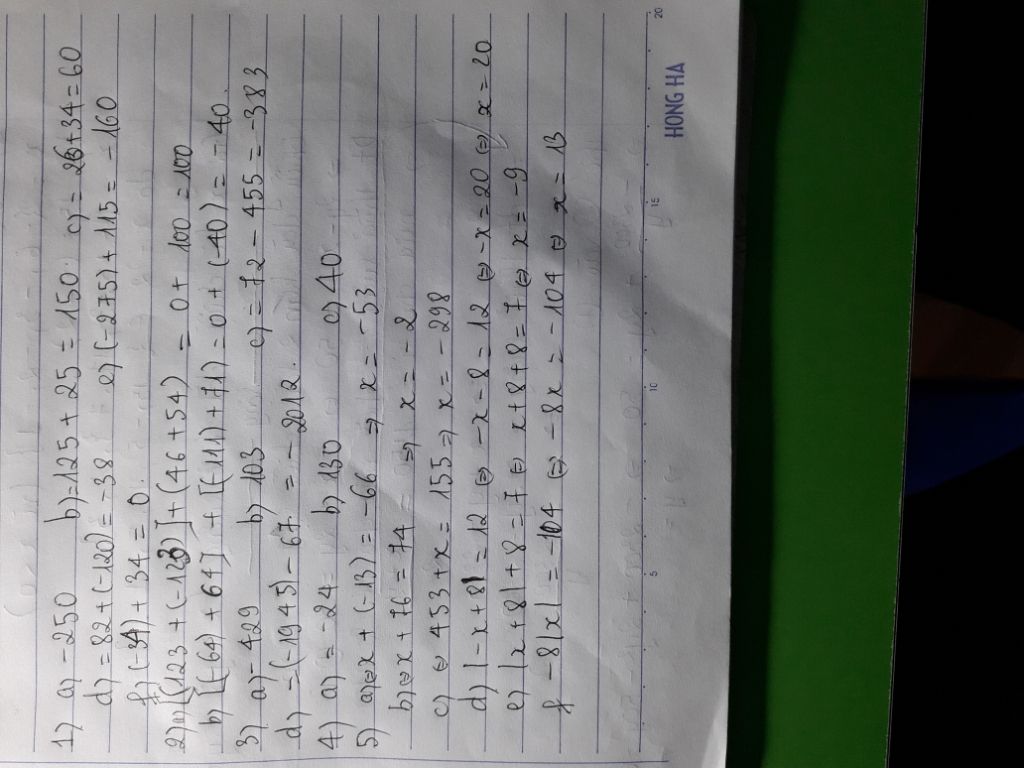 1) a) -250 b) = 125 + 25 = 150. c) = 26 + 34 = 60
d) = 82 + (-120) = -38 e) (-275) + 115 = -160
f) (-34) + 34 = 0.
2) a) [123 + (-123)] + (46 + 54) = 0 + 100 = 100
b) [(-64) + 64] + [(-111) + 71] = 0 + (-40) = -40.
3) a) -429 b) 103 c) = 72 - 455 = -383
d) = (-1945) - 67 = -2012.
4) a) = -24 b) 130 c) 40
5) a) ⇔ x + (-13) = -66 ⇒ x = -53
b) ⇔ x + 76 = 74 ⇒ x = -2
c) ⇔ 453 + x = 155 ⇒ x = -298
d) |-x + 8| = 12 ⇔ -x - 8 = 12 ⇔ -x = 20 ⇔ x = 20
e) |x + 8| + 8 = 7 ⇔ x + 8 + 8 = 7 ⇔ x = -9
f -8|x| = -104 ⇔ -8x = -104 ⇔ x = 13
5 10 15 20
HONG HA